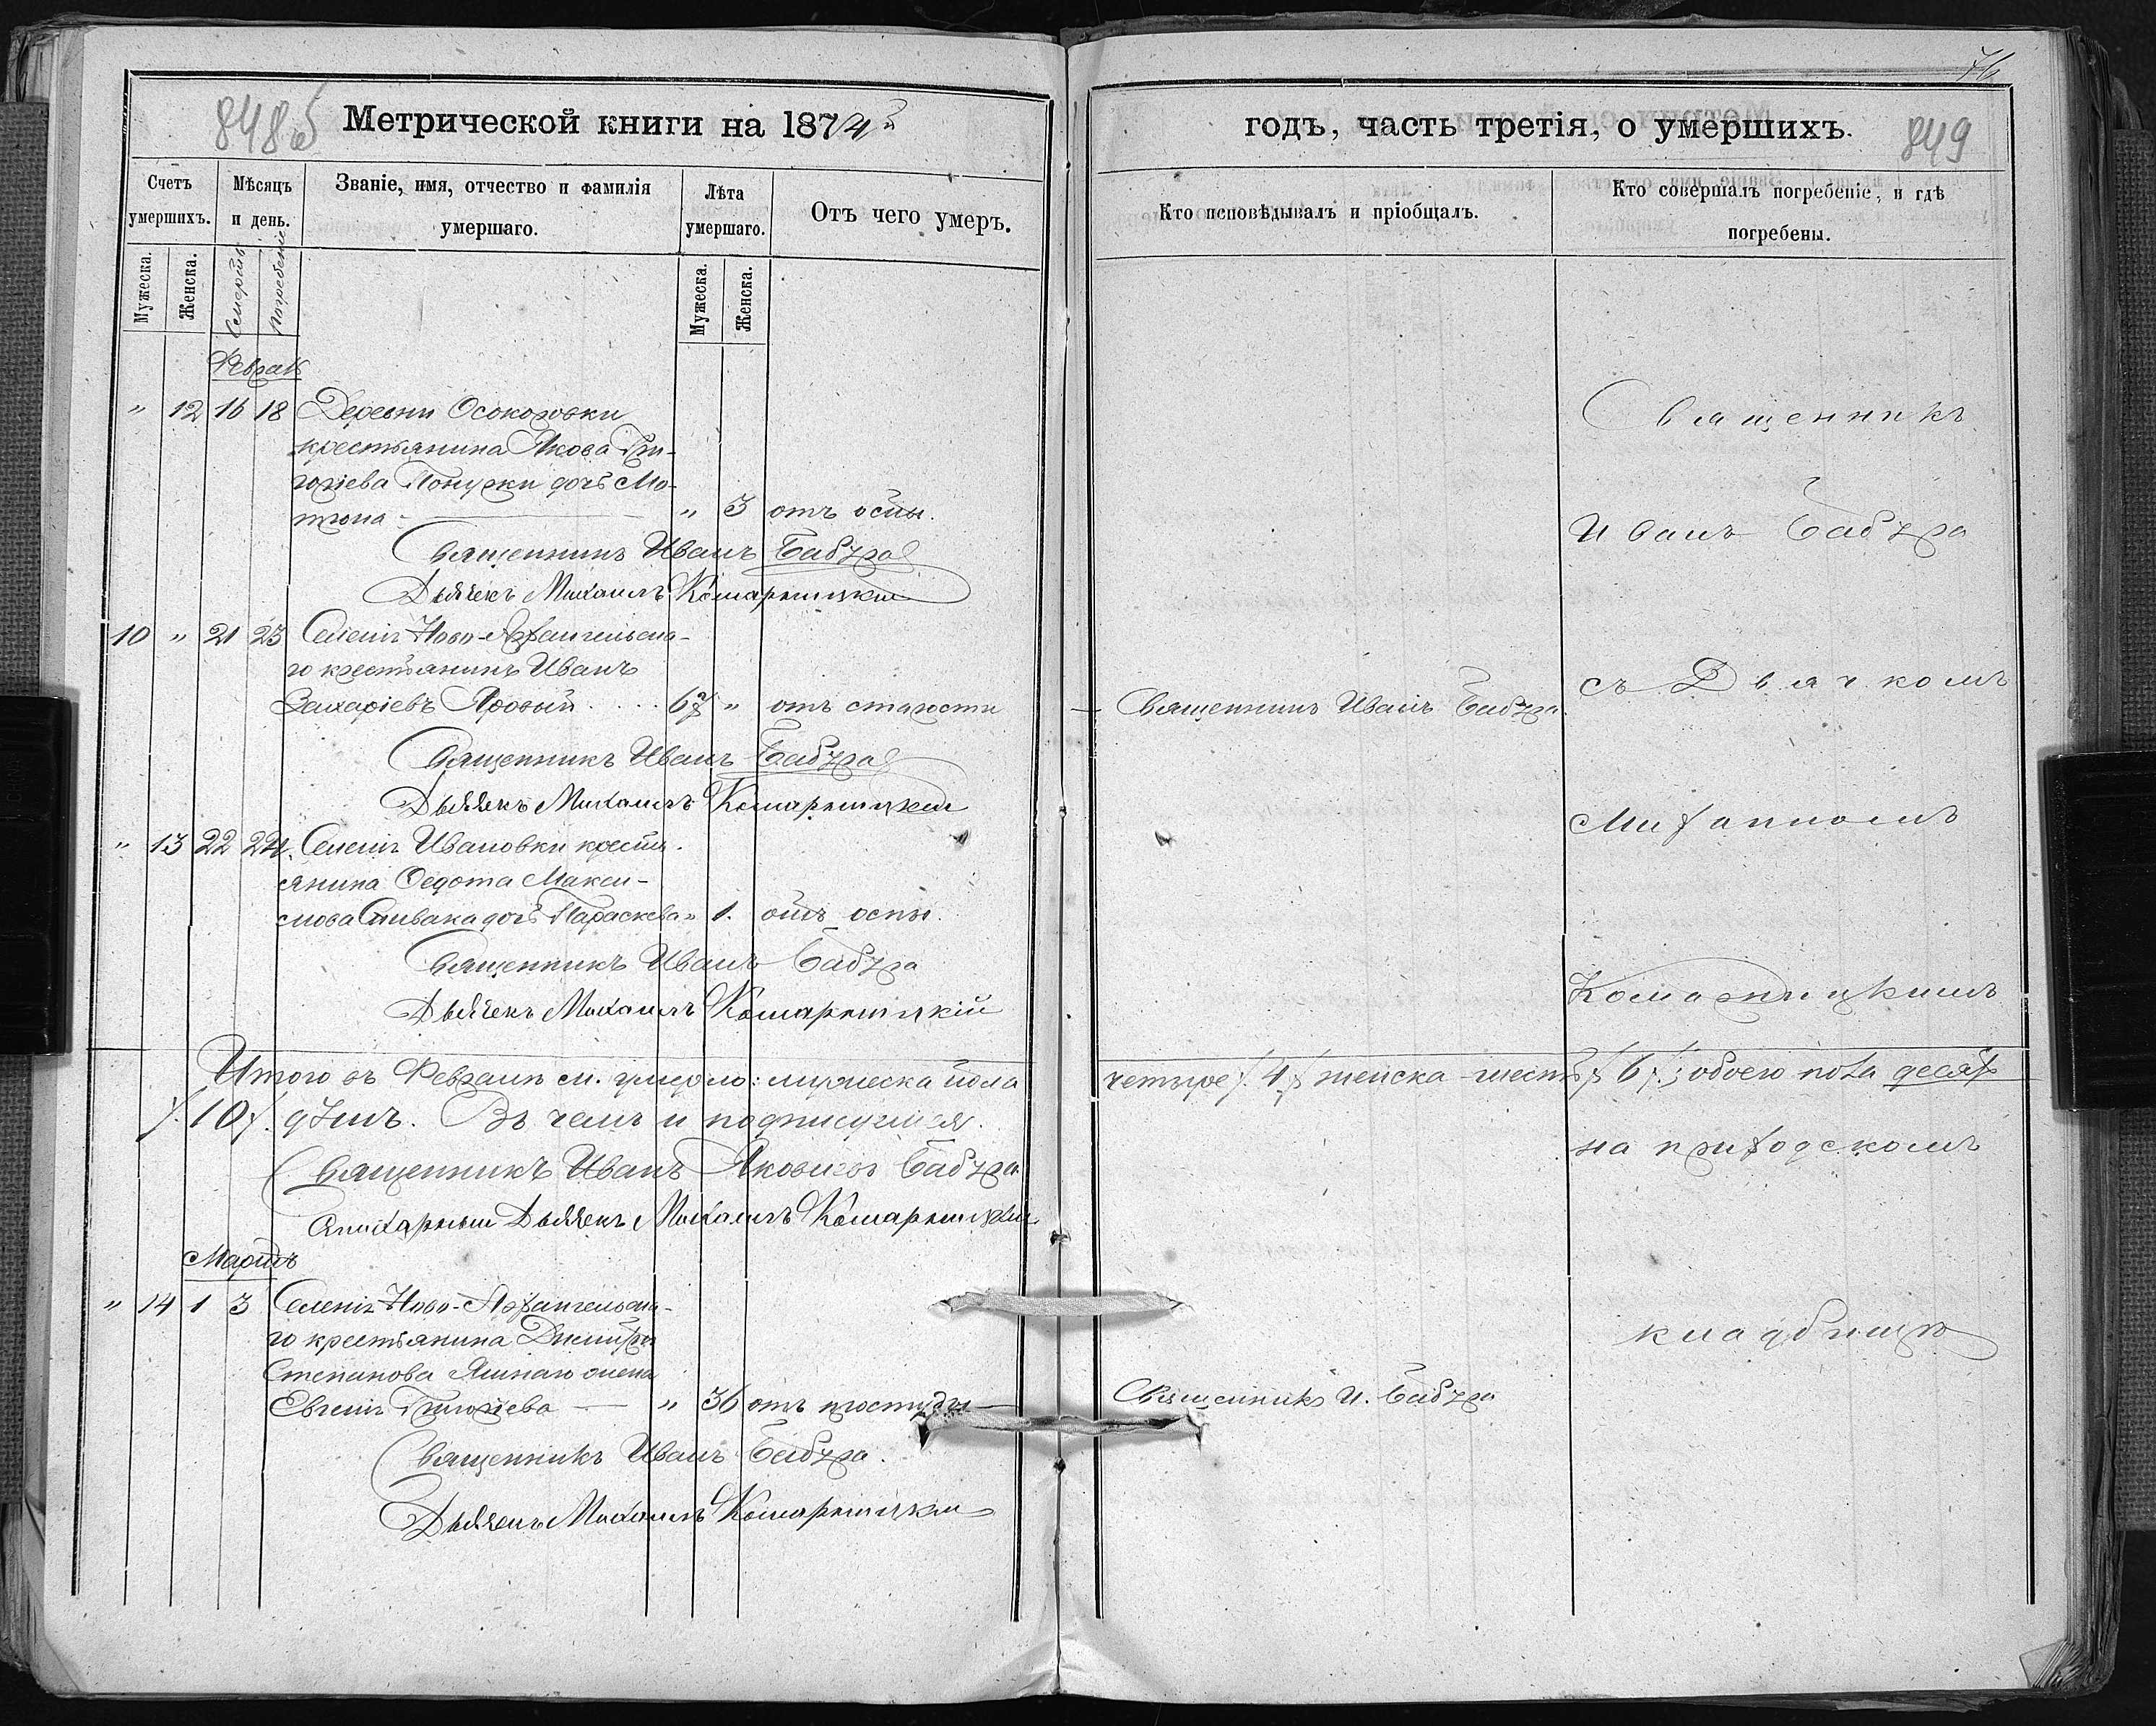 76
848 об
Метрической книги на 1874й
годъ, часть третія, о умершихъ.
849
Счетъ умершихъ.
Мѣсяцъ и день.
Званіе, имя, отчество и фамилія умершаго.
Лѣта умершаго.
Отъ чего умеръ.
Кто исповѣдывалъ и пріобщалъ.
Кто совершалъ погребеніе, и гдѣ погребены.
Мужеска.
Женска.
Смерть
Погребеніе
Мужеска.
Женска.
Феврал
" 12 16 18 Деревни Осокоровки
крестьянина Якова Гри-
горіева дочь Мо-
трона " 3 отъ оспы.
Священникъ Иванъ Бабура
Дьячекъ Михаилъ Комарницкій
10 " 21 23 Селенія Ново-Архангельска-
го крестьянинъ Иванъ
Захаріевъ Яровый 67 " отъ старости
Священникъ Иванъ Бабура
Священникъ Иванъ Бабура
Дьячекъ Михаилъ Комарницкій
" 13 22 24. Селенія Ивановки крестьян-
янина Ѳедота Макси-
мова Спивака дочь Параскева " 1. отъ оспы.
Священникъ Иванъ Бабура
Дьячекъ Михаилъ Комарницкій
Итого въ Февралѣ м. умерло: мужеска пола четыре /.4./ женска шесть /.6./; обоего пола десять
/.10/. душъ. Въ чемъ и подписуемся.
Священникъ Иванъ Яковлевъ Бабура
Дьячекъ Михаилъ Комарницкій
Мартъ
" 14 1 3 Селенія Ново-Архангельска-
го крестьянина Димитрія
Степанова жена
Евгенія Григоріева " 36 отъ простуды
Священникъ И. Бабура
Священникъ Иванъ Бабура.
Дьячекъ Михаилъ Комарницкій
Священникъ
Иванъ Бабура
съ Дьячкомъ
Михаиломъ
Комарницкимъ
на приходскомъ
кладбищѣ